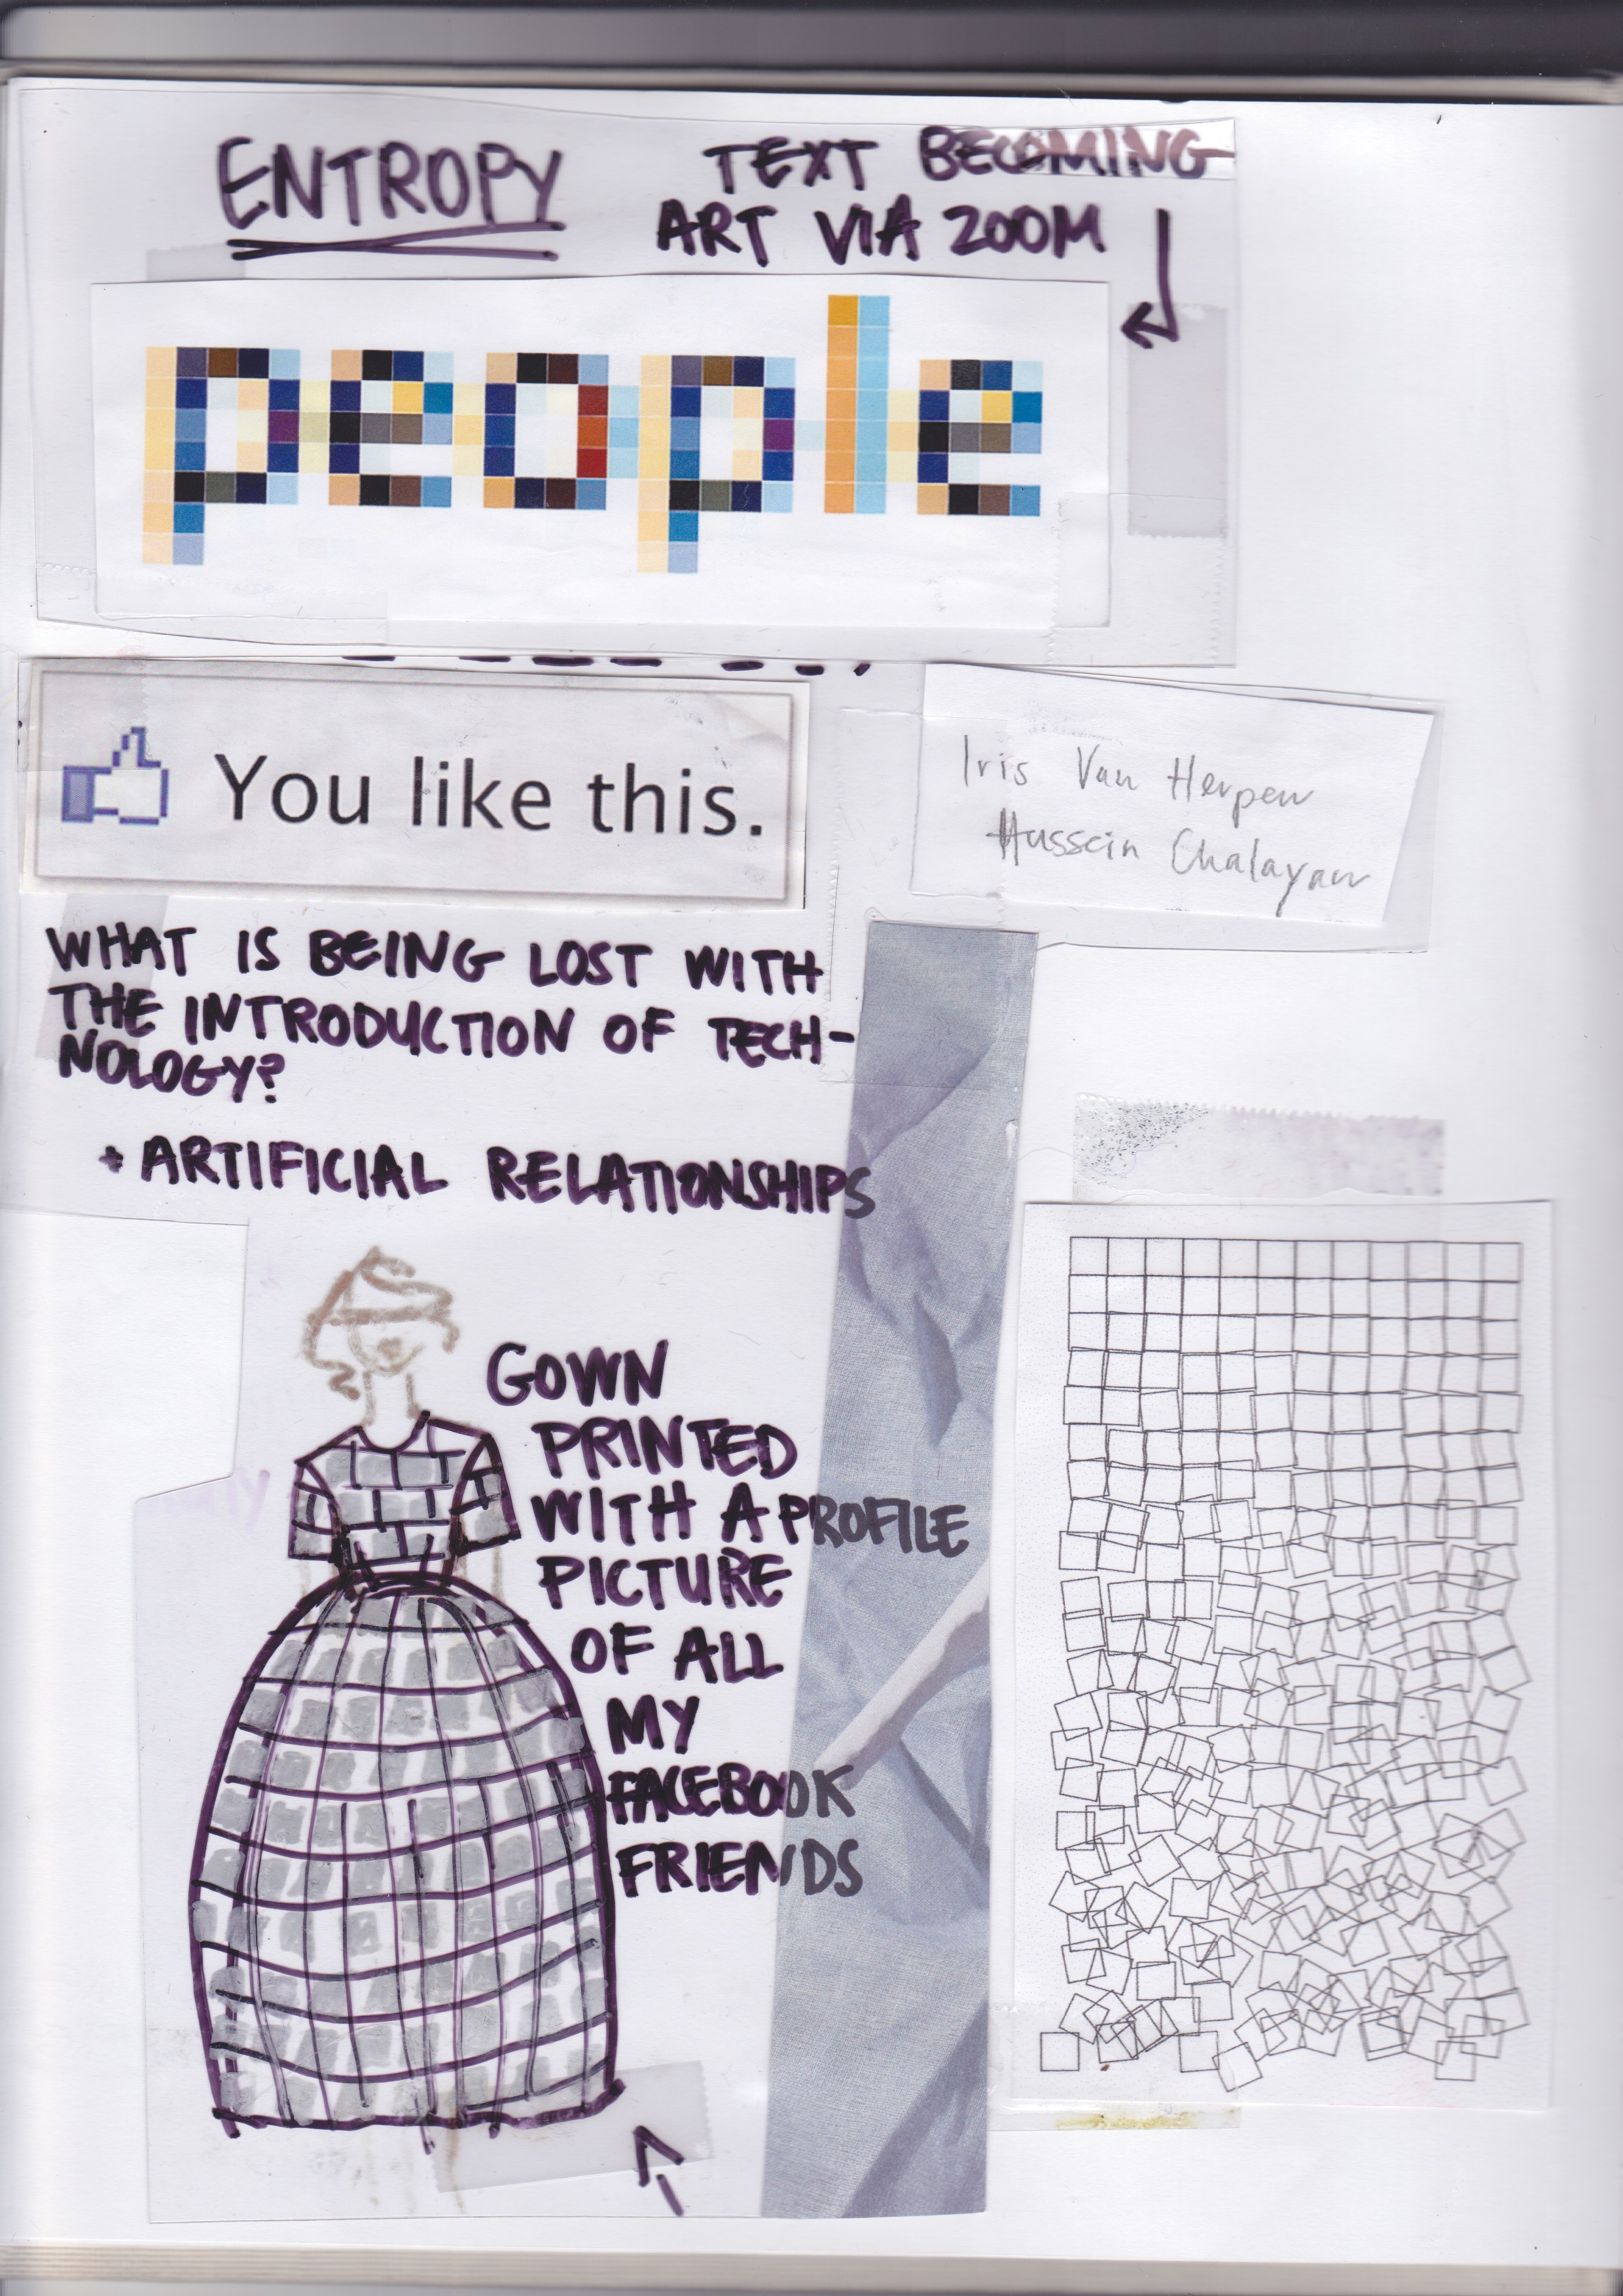 ENTROPY
TEXT BECOMING
ART VIA ZOOM
people
You like this.
Iris Van Herpen
Hussein Chalayan
WHAT IS BEING LOST WITH
THE INTRODUCTION OF TECH-
NOLOGY?
+ ARTIFICIAL RELATIONSHIPS
GOWN
PRINTED
WITH A PROFILE
PICTURE
OF ALL
MY
FACEBOOK
FRIENDS